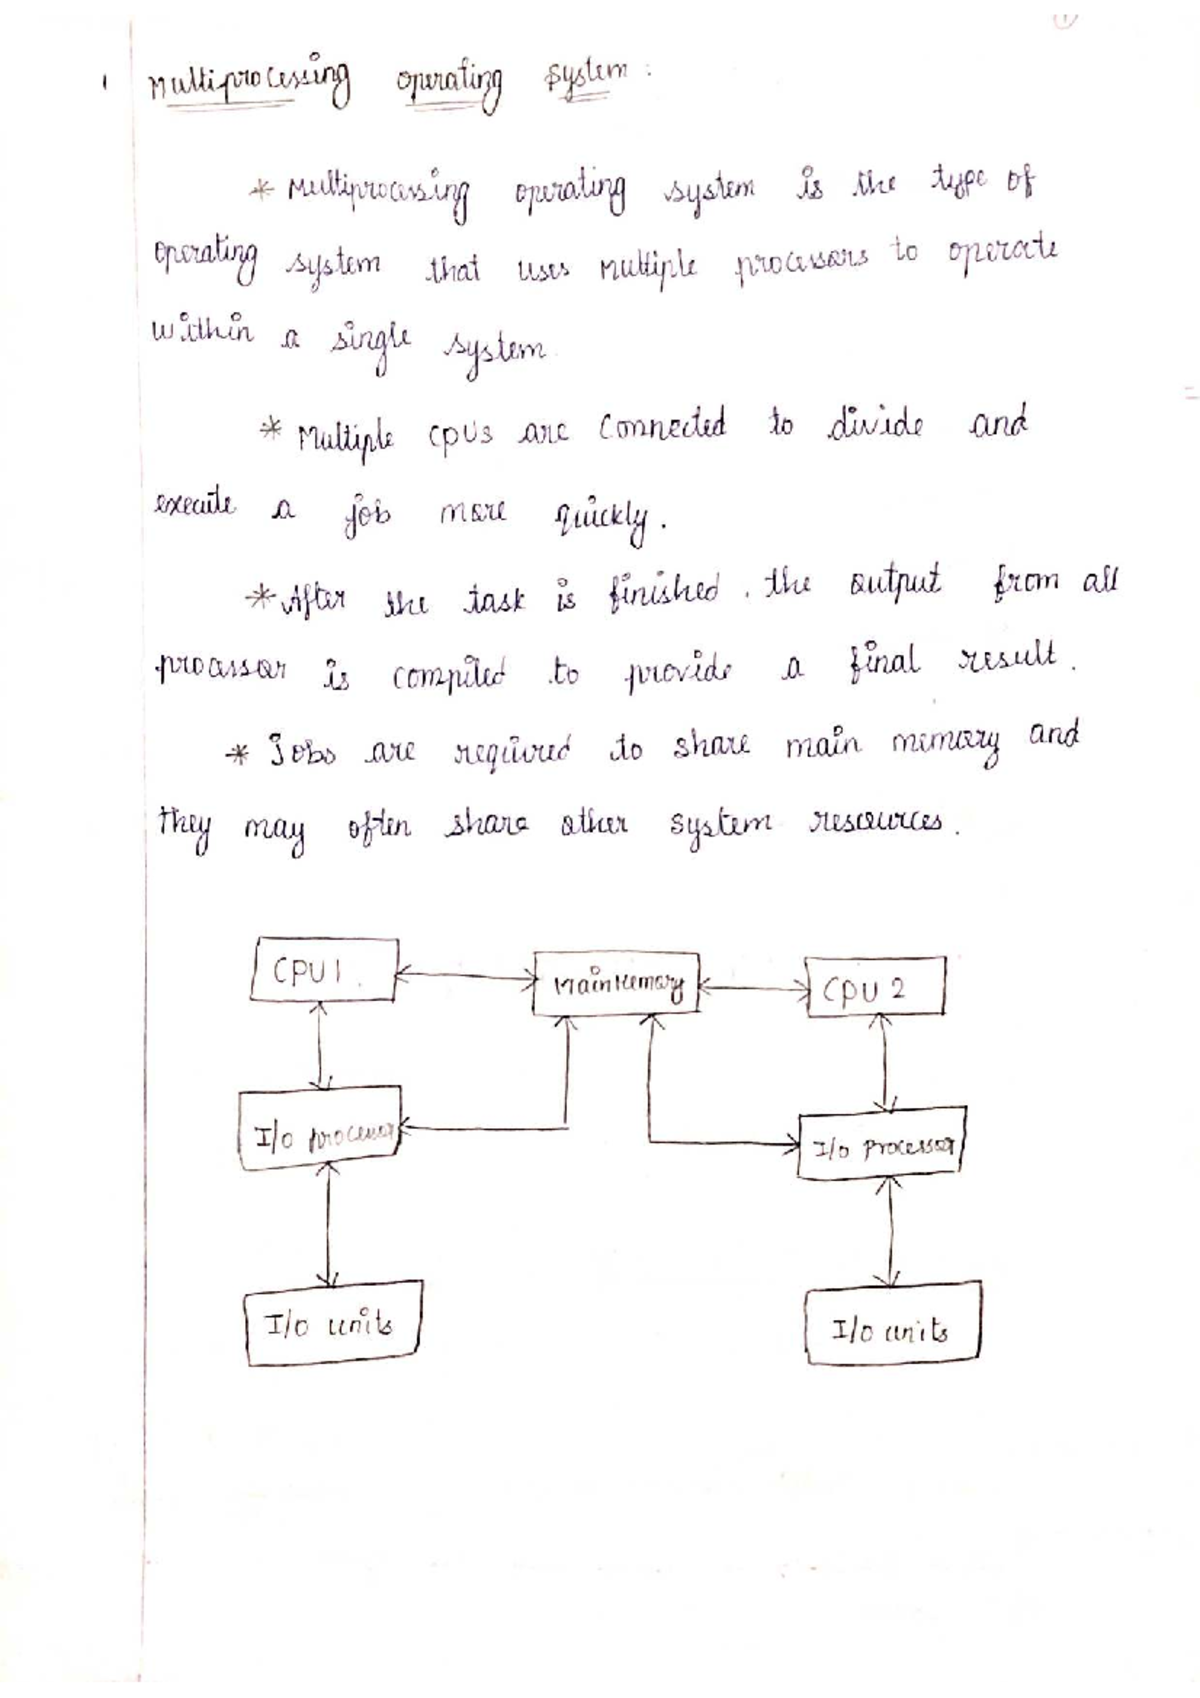 1
1 Multiprocessing operating system :
* Multiprocessing operating system is the type of
operating system that uses multiple processors to operate
within a single system.
* Multiple CPUs are connected to divide and
execute a job more quickly.
* After the task is finished, the output from all
processor is compiled to provide a final result.
* Jobs are required to share main memory and
they may often share other system resources.
CPU 1
Main Memory
CPU 2
I/o processor
I/o Processor
I/o units
I/o units